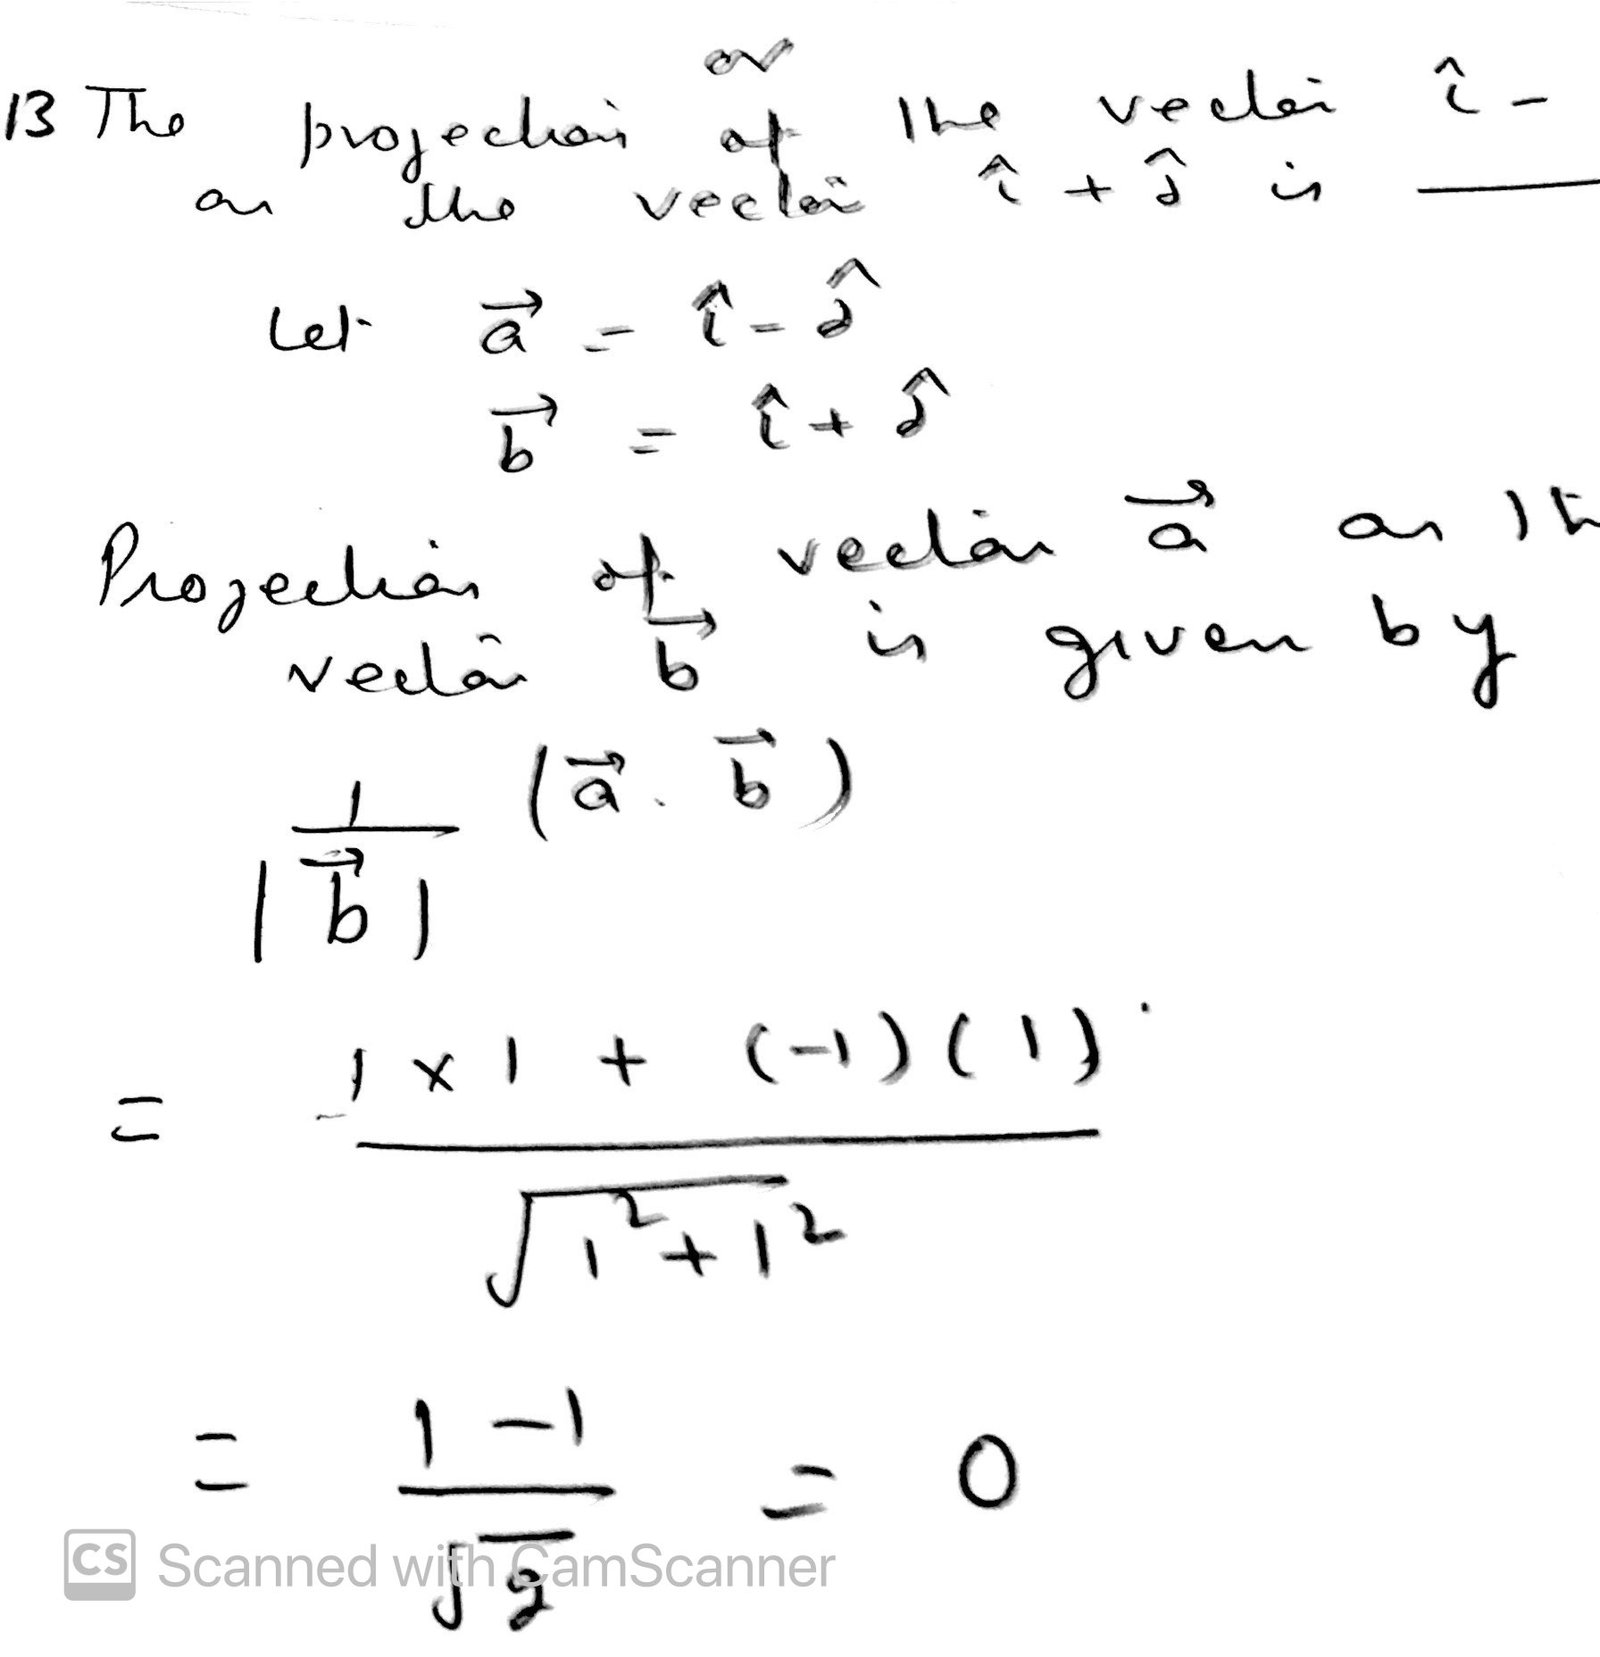 or
13 The projection of the vector î -
on the vector î + ĵ is ____
Let a⃗ = î - ĵ
b⃗ = î + ĵ
Projection of vector a⃗ on th
vector b⃗ is given by
1/|b⃗| (a⃗ . b⃗)
= 1 × 1 + (-1) (1) / √1² + 1²
= 1 - 1 / √2 = 0
CS Scanned with CamScanner